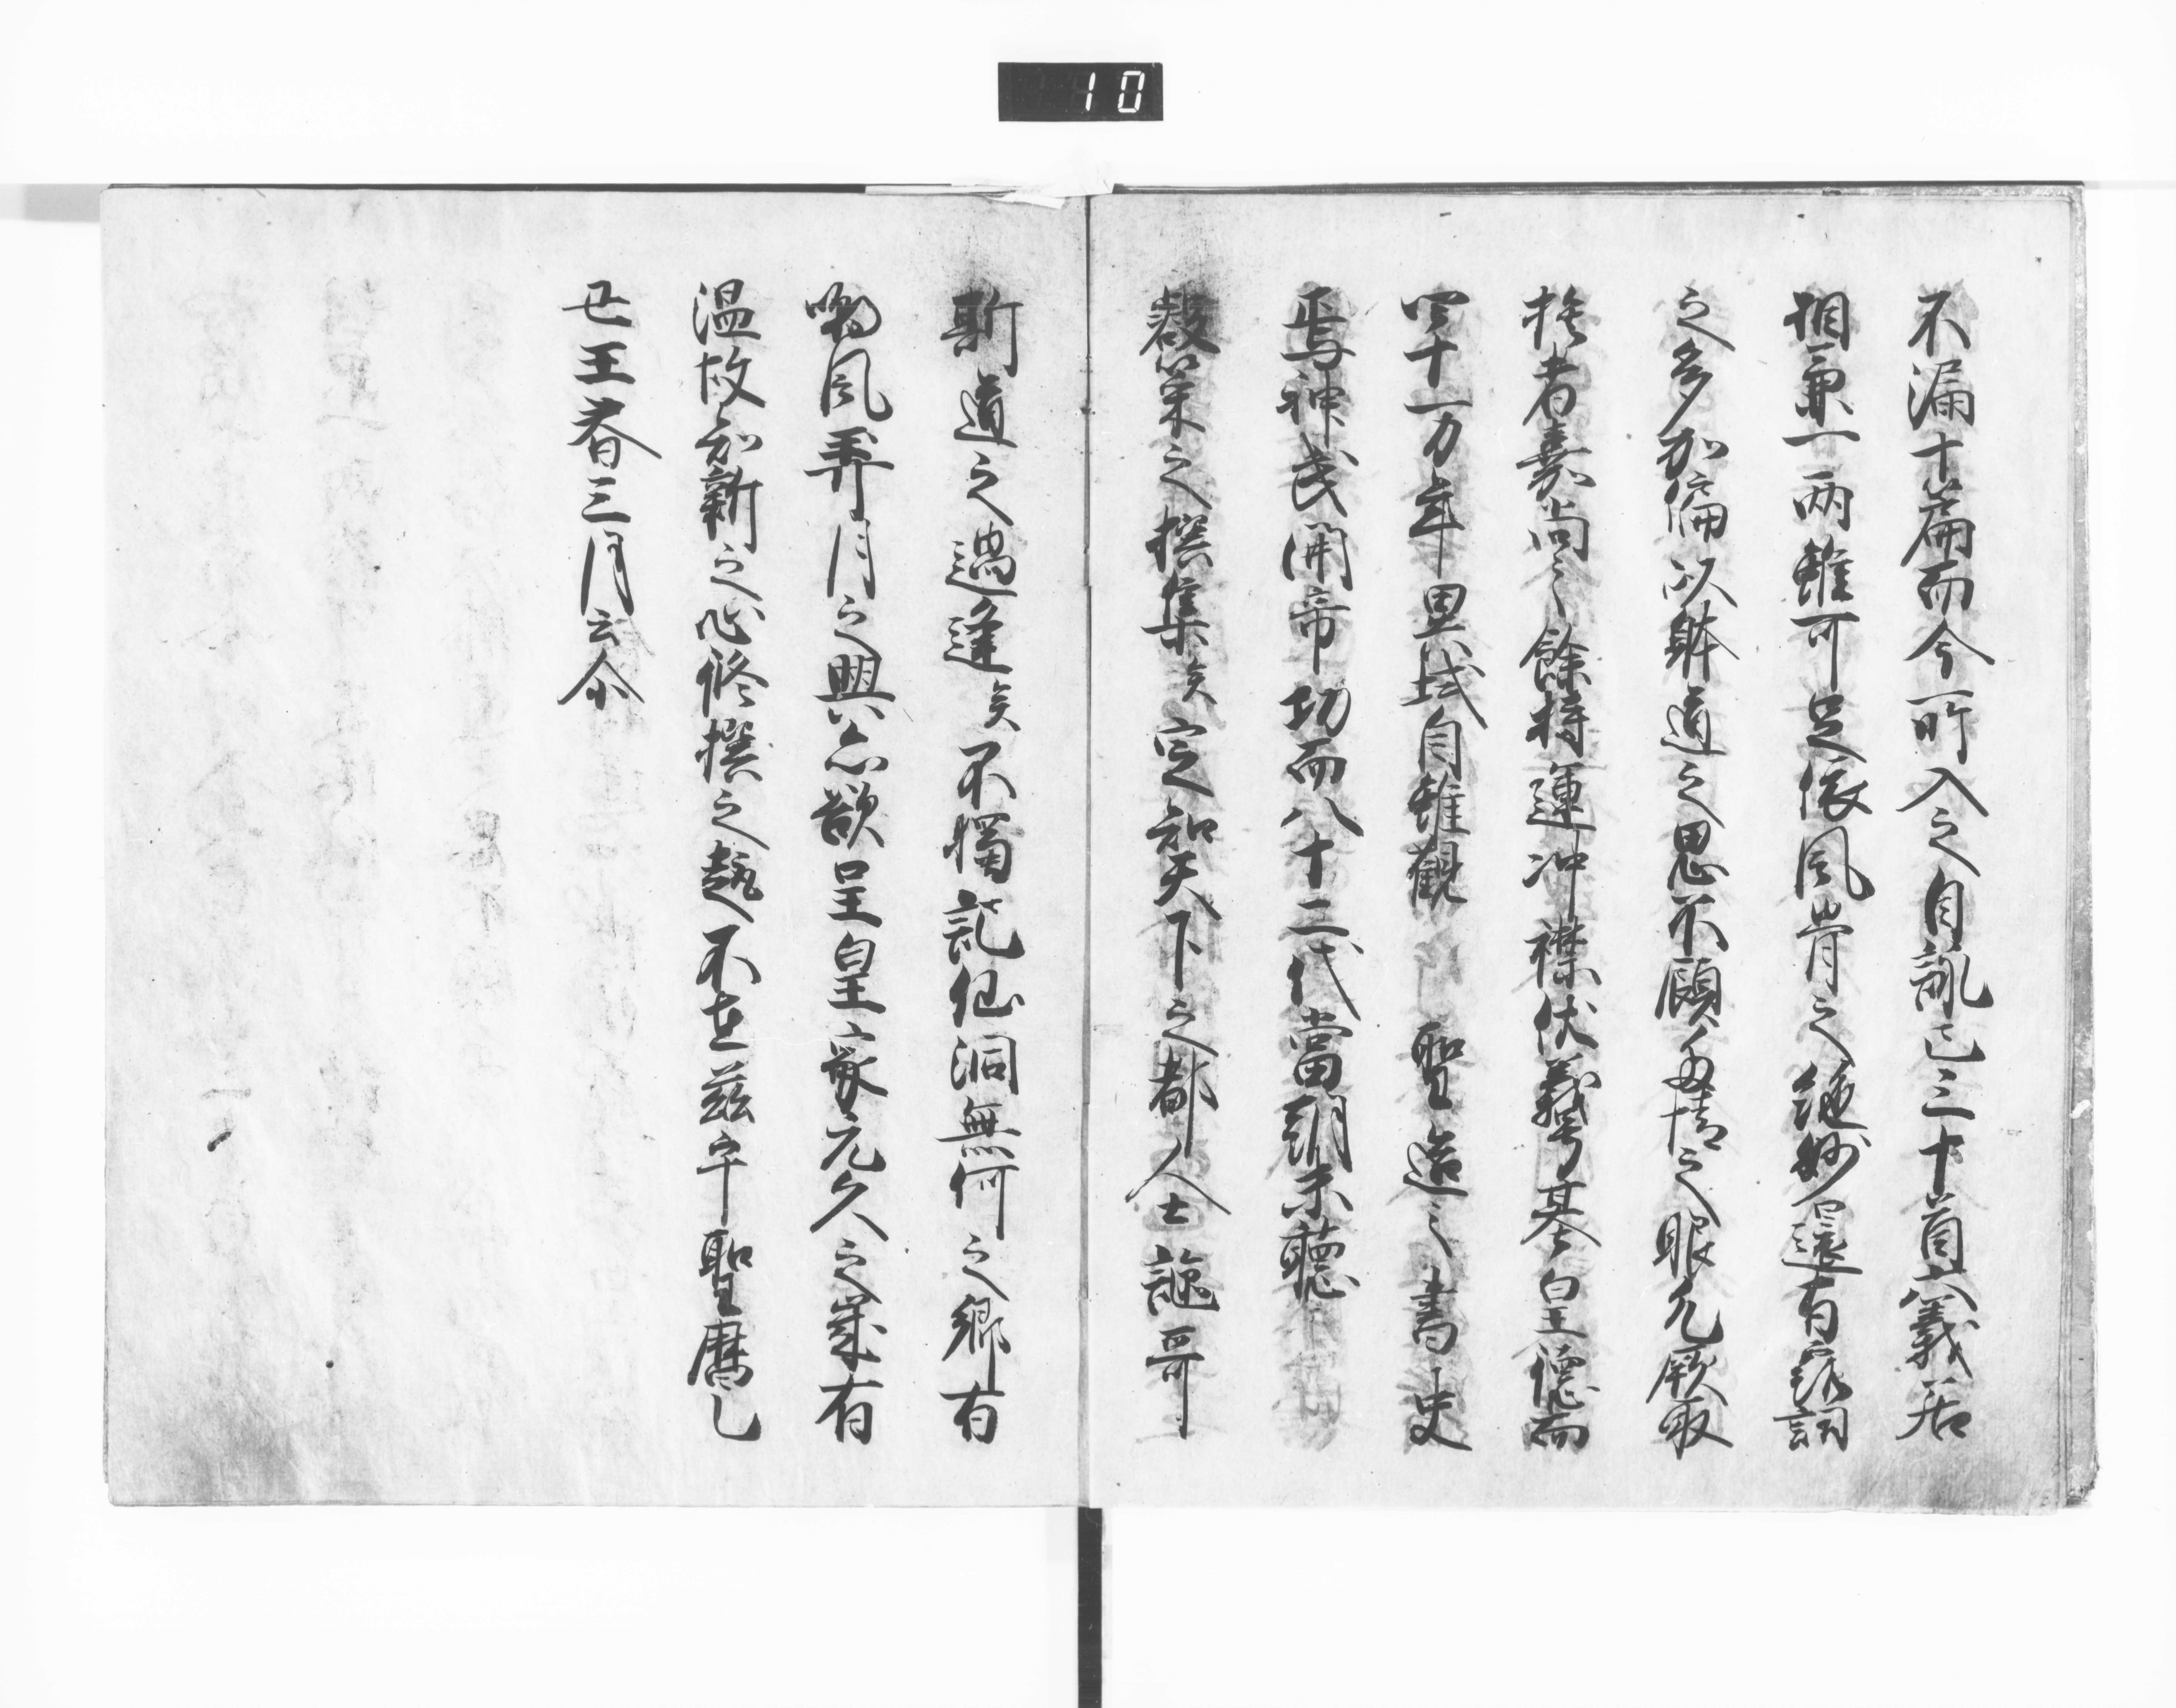 10
不漏十篇而今所入之自詠已三十首六義若
相兼一両雖可足依風骨之絶妙還有露詞
之多加偏以躰道之思不顧多情之眼凡厥取
捨者嘉尚之餘特運冲襟伏羲基皇徳而
四十万年異域自雖観聖造之書史
焉神武開帝功而八十二代當朝未聴
叡策之撰集矣定知天下之都人士謳哥
斯道之遇逢矣不獨記仙洞無何之郷有
嘲風弄月之興亦欲呈皇家元久之歳有
温故知新之心修撰之趣不在茲乎聖暦乙
丑王春三月云尒